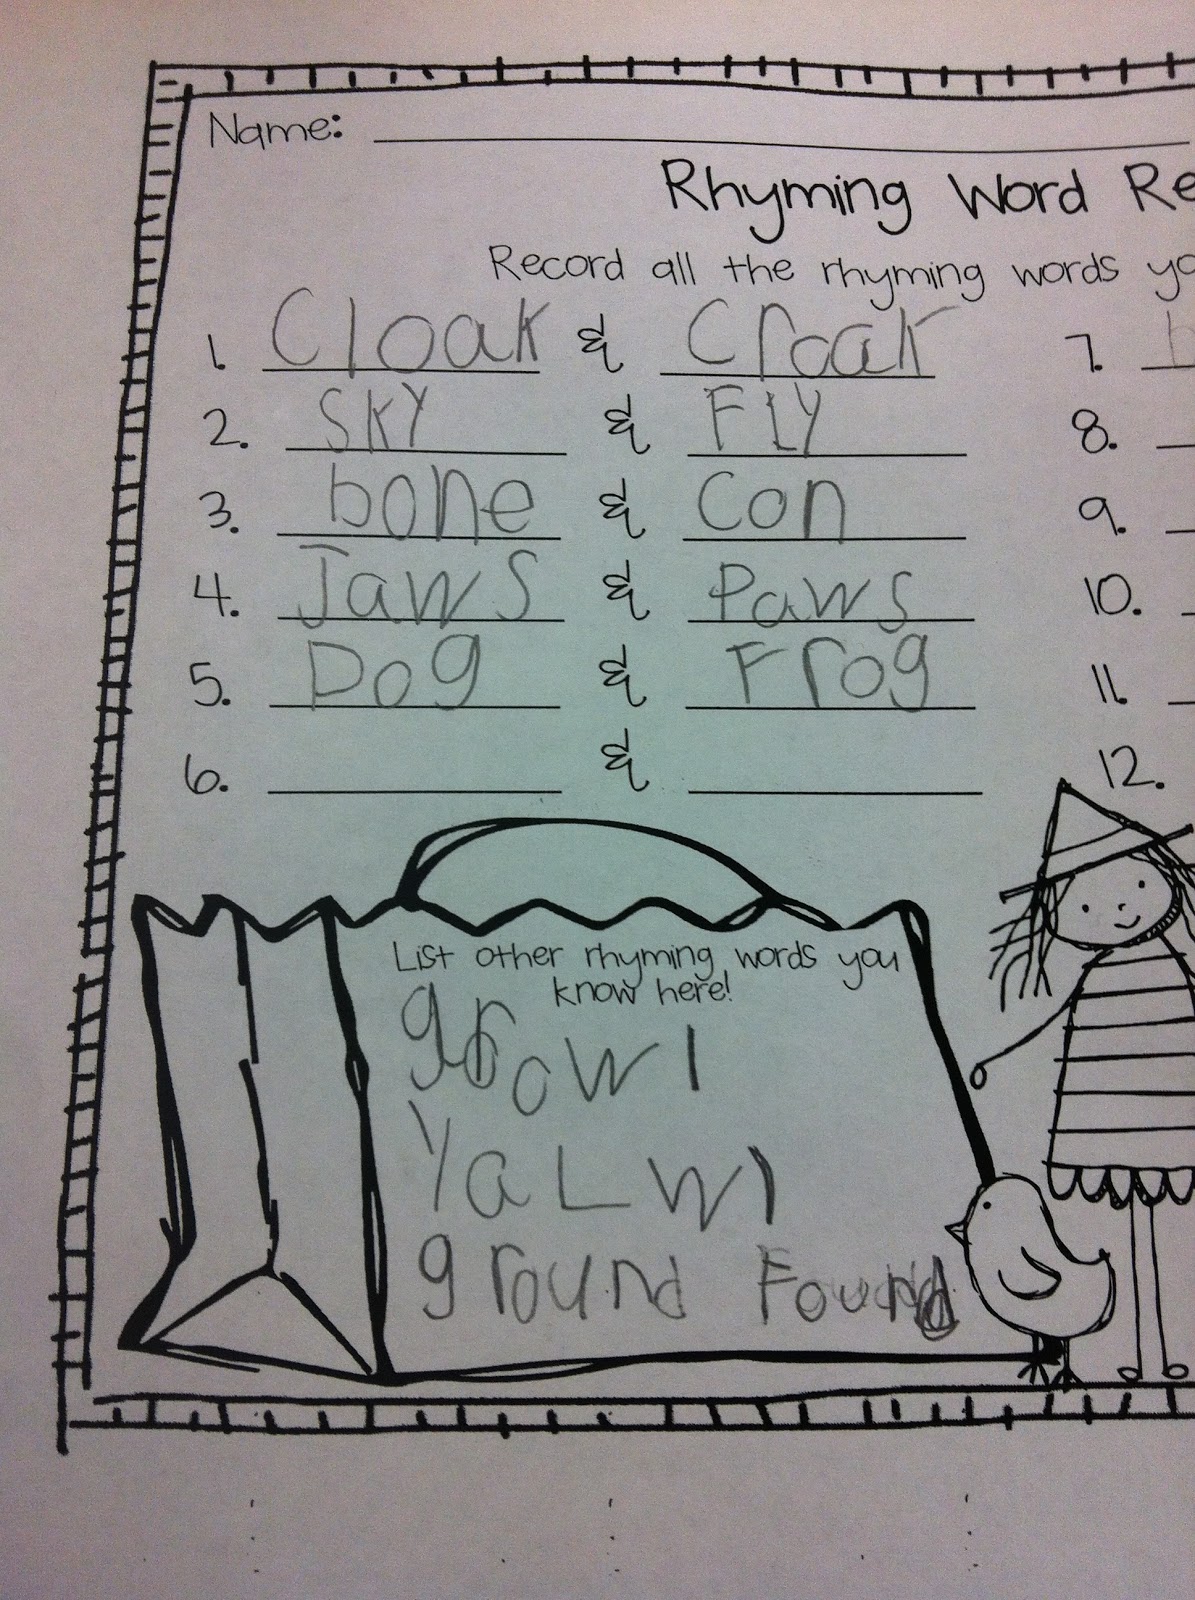 Name:
Rhyming Word Re
Record all the rhyming words yo
1. Cloak & Croak 7. b
2. SKY & FLY 8.
3. bone & Con 9.
4. Jaws & Paws 10.
5. Dog & Frog 11.
6. & 12.
List other rhyming words you
know here!
growl
YaLwl
ground Found